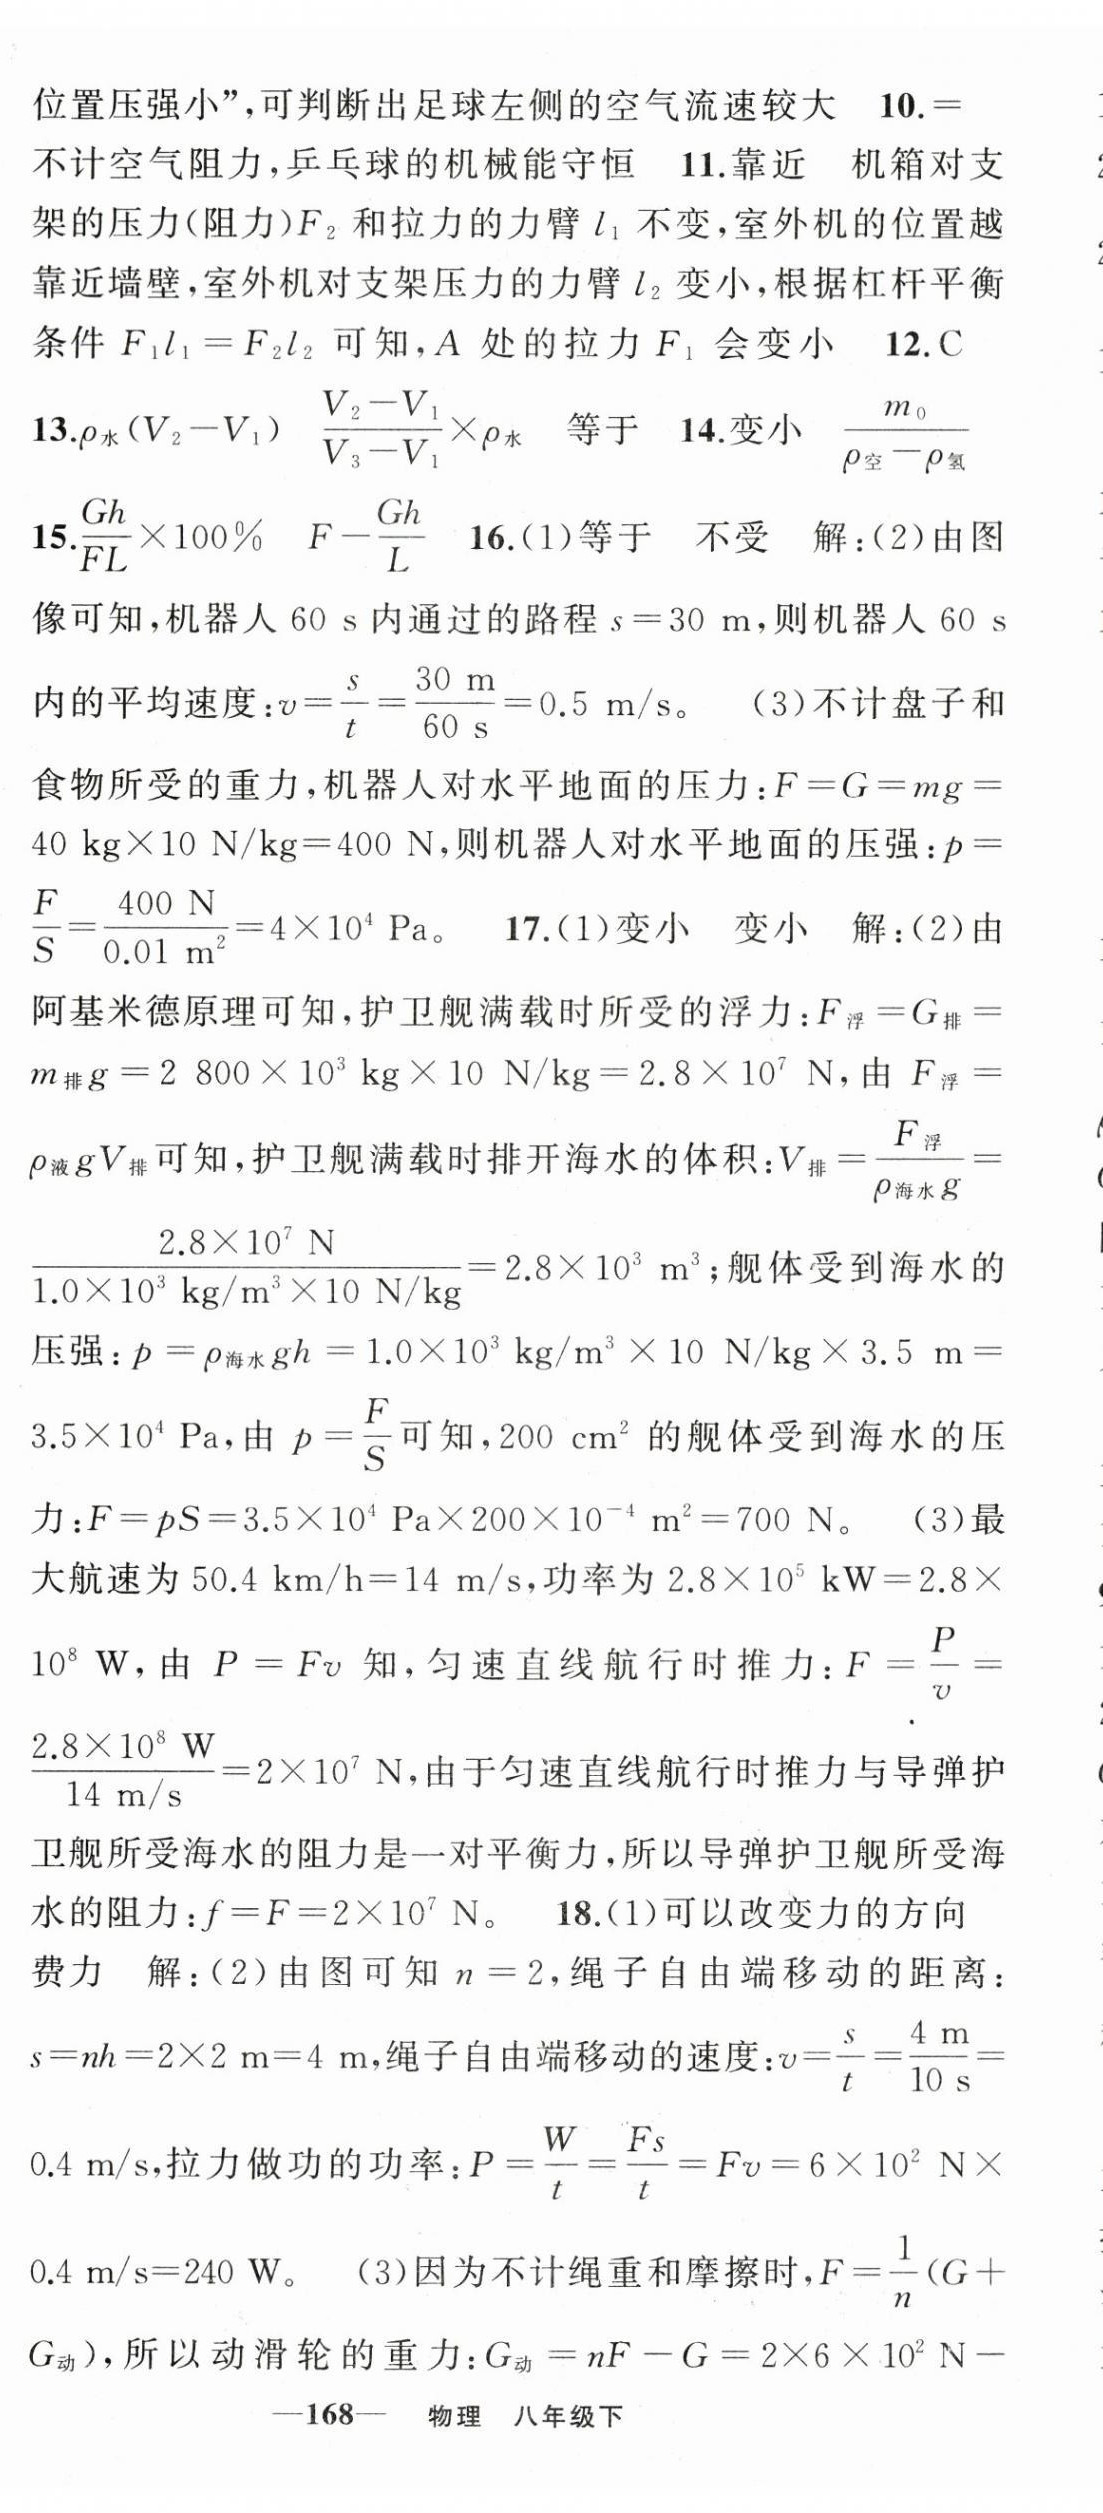 位置压强小”,可判断出足球左侧的空气流速较大　10.=
不计空气阻力,乒乓球的机械能守恒　11.靠近　机箱对支
架的压力(阻力)F₂ 和拉力的力臂 l₁ 不变,室外机的位置越
靠近墙壁,室外机对支架压力的力臂 l₂ 变小,根据杠杆平衡
条件 F₁l₁=F₂l₂ 可知,A 处的拉力 F₁ 会变小　12.C
13.ρ水(V₂-V₁)　(V₂-V₁)/(V₃-V₁)×ρ水　等于　14.变小　m₀/(ρ空-ρ氢)
15.Gh/FL×100%　F-Gh/L　16.(1)等于　不受　解:(2)由图
像可知,机器人 60 s 内通过的路程 s=30 m,则机器人 60 s
内的平均速度:v=s/t=30 m/60 s=0.5 m/s。　(3)不计盘子和
食物所受的重力,机器人对水平地面的压力:F=G=mg=
40 kg×10 N/kg=400 N,则机器人对水平地面的压强:p=
F/S=400 N/0.01 m²=4×10⁴ Pa。　17.(1)变小　变小　解:(2)由
阿基米德原理可知,护卫舰满载时所受的浮力:F浮=G排=
m排g=2 800×10³ kg×10 N/kg=2.8×10⁷ N,由 F浮=
ρ液gV排可知,护卫舰满载时排开海水的体积:V排=F浮/(ρ海水g)=
2.8×10⁷ N/(1.0×10³ kg/m³×10 N/kg)=2.8×10³ m³;舰体受到海水的
压强:p=ρ海水gh=1.0×10³ kg/m³×10 N/kg×3.5 m=
3.5×10⁴ Pa,由 p=F/S可知,200 cm² 的舰体受到海水的压
力:F=pS=3.5×10⁴ Pa×200×10⁻⁴ m²=700 N。　(3)最
大航速为 50.4 km/h=14 m/s,功率为 2.8×10⁵ kW=2.8×
10⁸ W,由 P=Fv 知,匀速直线航行时推力:F=P/v=
2.8×10⁸ W/14 m/s=2×10⁷ N,由于匀速直线航行时推力与导弹护
卫舰所受海水的阻力是一对平衡力,所以导弹护卫舰所受海
水的阻力:f=F=2×10⁷ N。　18.(1)可以改变力的方向
费力　解:(2)由图可知 n=2,绳子自由端移动的距离:
s=nh=2×2 m=4 m,绳子自由端移动的速度:v=s/t=4 m/10 s=
0.4 m/s,拉力做功的功率:P=W/t=Fs/t=Fv=6×10² N×
0.4 m/s=240 W。　(3)因为不计绳重和摩擦时,F=1/n(G+
G动),所以动滑轮的重力:G动=nF-G=2×6×10² N-
—168—　物理　八年级下